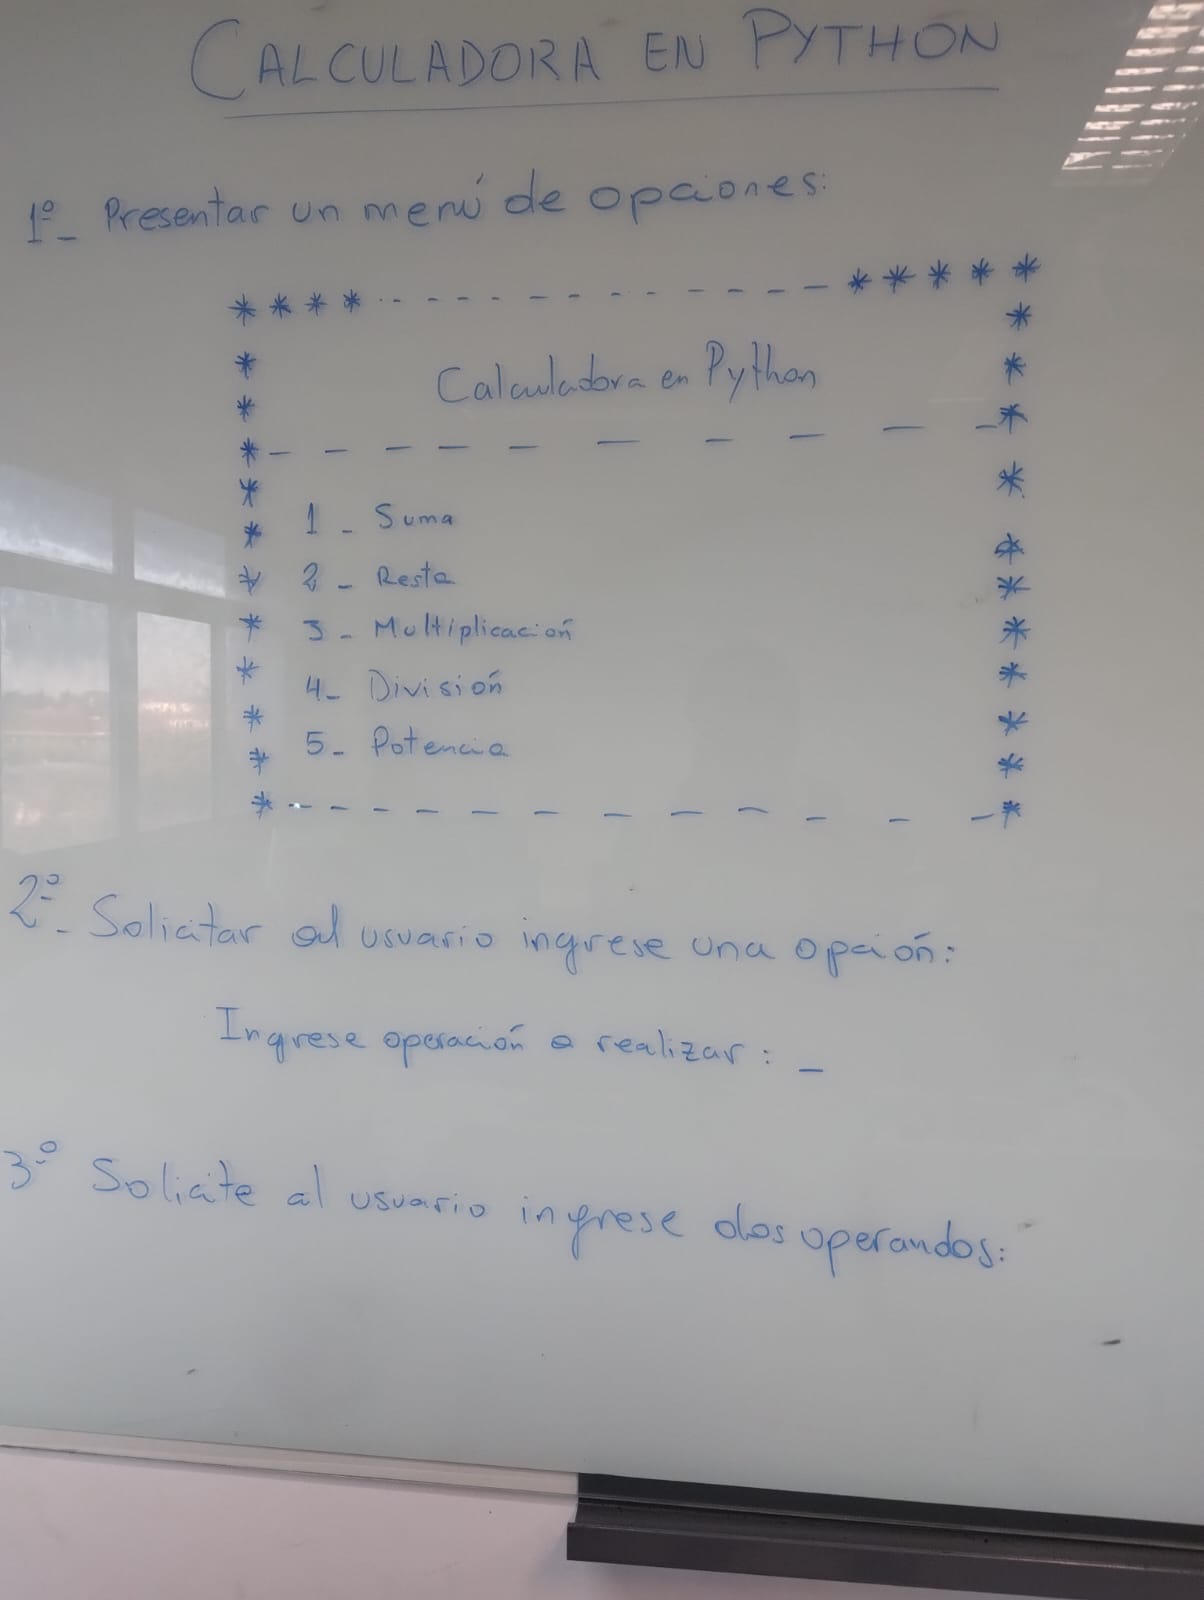 CALCULADORA EN PYTHON
1º_ Presentar un menú de opciones:
* * * * - - - - - - - - - - - - * * * * *
Calculadora en Python
1 - Suma
2 - Resta
3 - Multiplicación
4 - División
5 - Potencia
2º_ Solicitar al usuario ingrese una opción:
Ingrese operación a realizar: _
3º Solicite al usuario ingrese dos operandos: